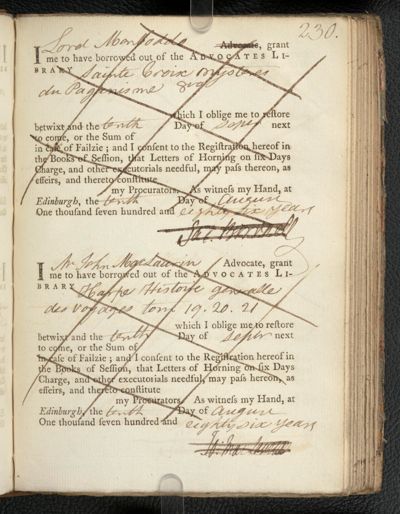 230.
I Lord Monboddo Advocate, grant
me to have borrowed out of the ADVOCATES LI-
BRARY Sainte Croix mysteres
du Paganisme 8vo
which I oblige me to reſtore
betwixt and the tenth Day of Septr next
to come, or the Sum of
in caſe of Failzie ; and I conſent to the Regiſtration hereof in
the Books of Seſſion, that Letters of Horning on ſix Days
Charge, and other executorials needful, may paſs thereon, as
effeirs, and thereto conſtitute
my Procurators. As witneſs my Hand, at
Edinburgh, the tenth Day of August
One thouſand ſeven hundred and eighty six years
I Mr John MacLaurin Advocate, grant
me to have borrowed out of the ADVOCATES LI-
BRARY Harpe Histoire generalle
des voyages tom. 19. 20. 21
which I oblige me to reſtore
betwixt and the tenth Day of Septr next
to come, or the Sum of
in caſe of Failzie ; and I conſent to the Regiſtration hereof in
the Books of Seſſion, that Letters of Horning on ſix Days
Charge, and other executorials needful, may paſs hereon, as
effeirs, and thereto conſtitute
my Procurators. As witneſs my Hand, at
Edinburgh, the tenth Day of August
One thouſand ſeven hundred and eighty six years